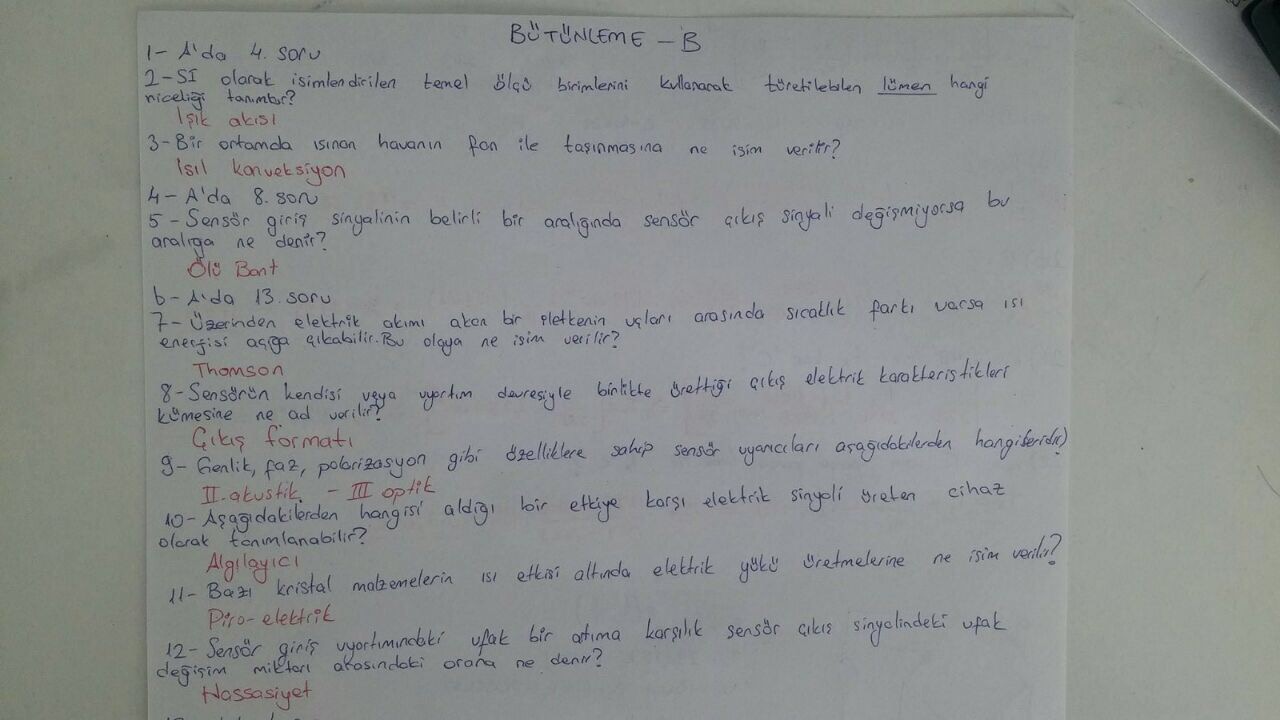 BÜTÜNLEME - B
1- A'da 4. soru
2- SI olarak isimlendirilen temel ölçü birimlerini kullanarak türetilebilen lümen hangi
niceliği tanımlar?
Işık akısı
3- Bir ortamda ısınan havanın fan ile taşınmasına ne isim verilir?
Isıl konveksiyon
4- A'da 8. soru
5- Sensör giriş sinyalinin belirli bir aralığında sensör çıkış sinyali değişmiyorsa bu
aralığa ne denir?
Ölü Bant
6- A'da 13. soru
7- Üzerinden elektrik akımı akan bir iletkenin uçları arasında sıcaklık farkı varsa ısı
energisi açığa çıkabilir. Bu olaya ne isim verilir?
Thomson
8- Sensörün kendisi veya uyartım devresiyle birlikte ürettiği çıkış elektrik karakteristikleri
kümesine ne ad verilir?
Çıkış formatı
9- Genlik, faz, polarizasyon gibi özelliklere sahip sensör uyarıcıları aşağıdakilerden hangileridir?
II- akustik - III optik
10- Aşağıdakilerden hangisi aldığı bir etkiye karşı elektrik sinyali üreten cihaz
olarak tanımlanabilir?
Algılayıcı
11- Bazı kristal malzemelerin ısı etkisi altında elektrik yükü üretmelerine ne isim verilir?
Piro-elektrik
12- Sensör giriş uyartımındaki ufak bir artıma karşılık sensör çıkış sinyalindeki ufak
değişim miktarı arasındaki orana ne denir?
Hassasiyet